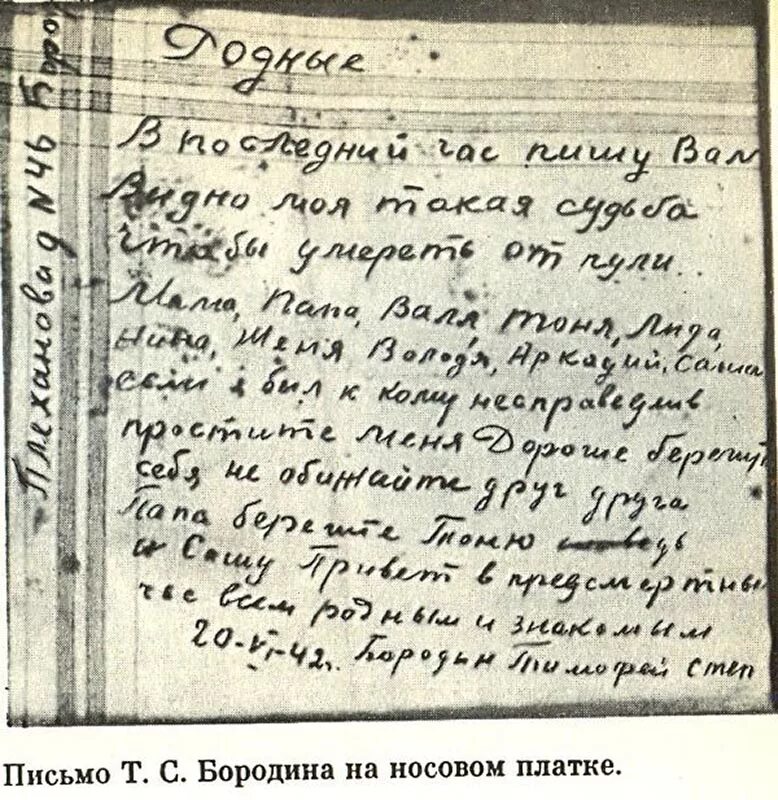 Плеханова д №46 Боро
Родные
В последний час пишу Вам
Видно моя такая судьба
чтобы умереть от пули..
Мама, Папа, Валя, Тоня, Лида,
Нина, Женя Володя, Аркадий, Саша
если я был к кому несправедлив
простите меня Дорогие берегит
себя не обижайте друг друга
Папа берегите Тоню
и Сашу Привет в предсмертны
час всем родным и знакомым
20-VI-42г. Бородин Тимофей Степ
Письмо Т. С. Бородина на носовом платке.